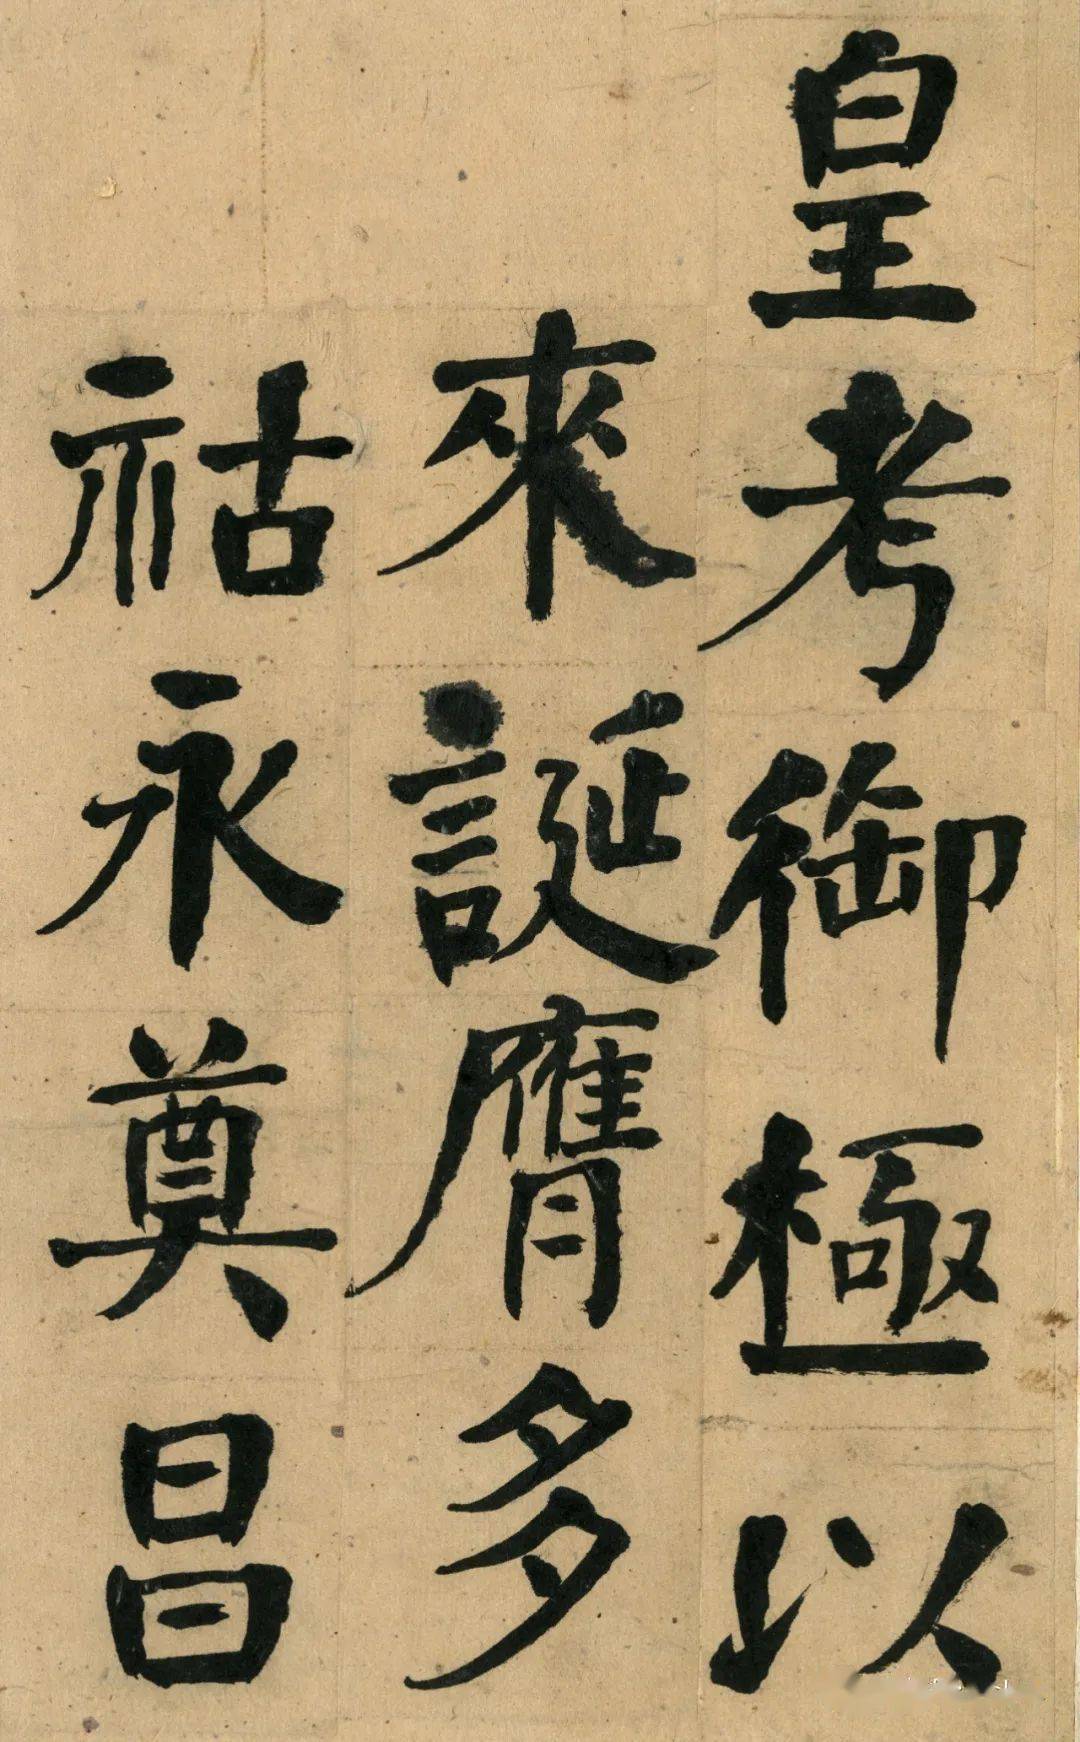 皇考御極以
來誕膺多
祜永奠昌